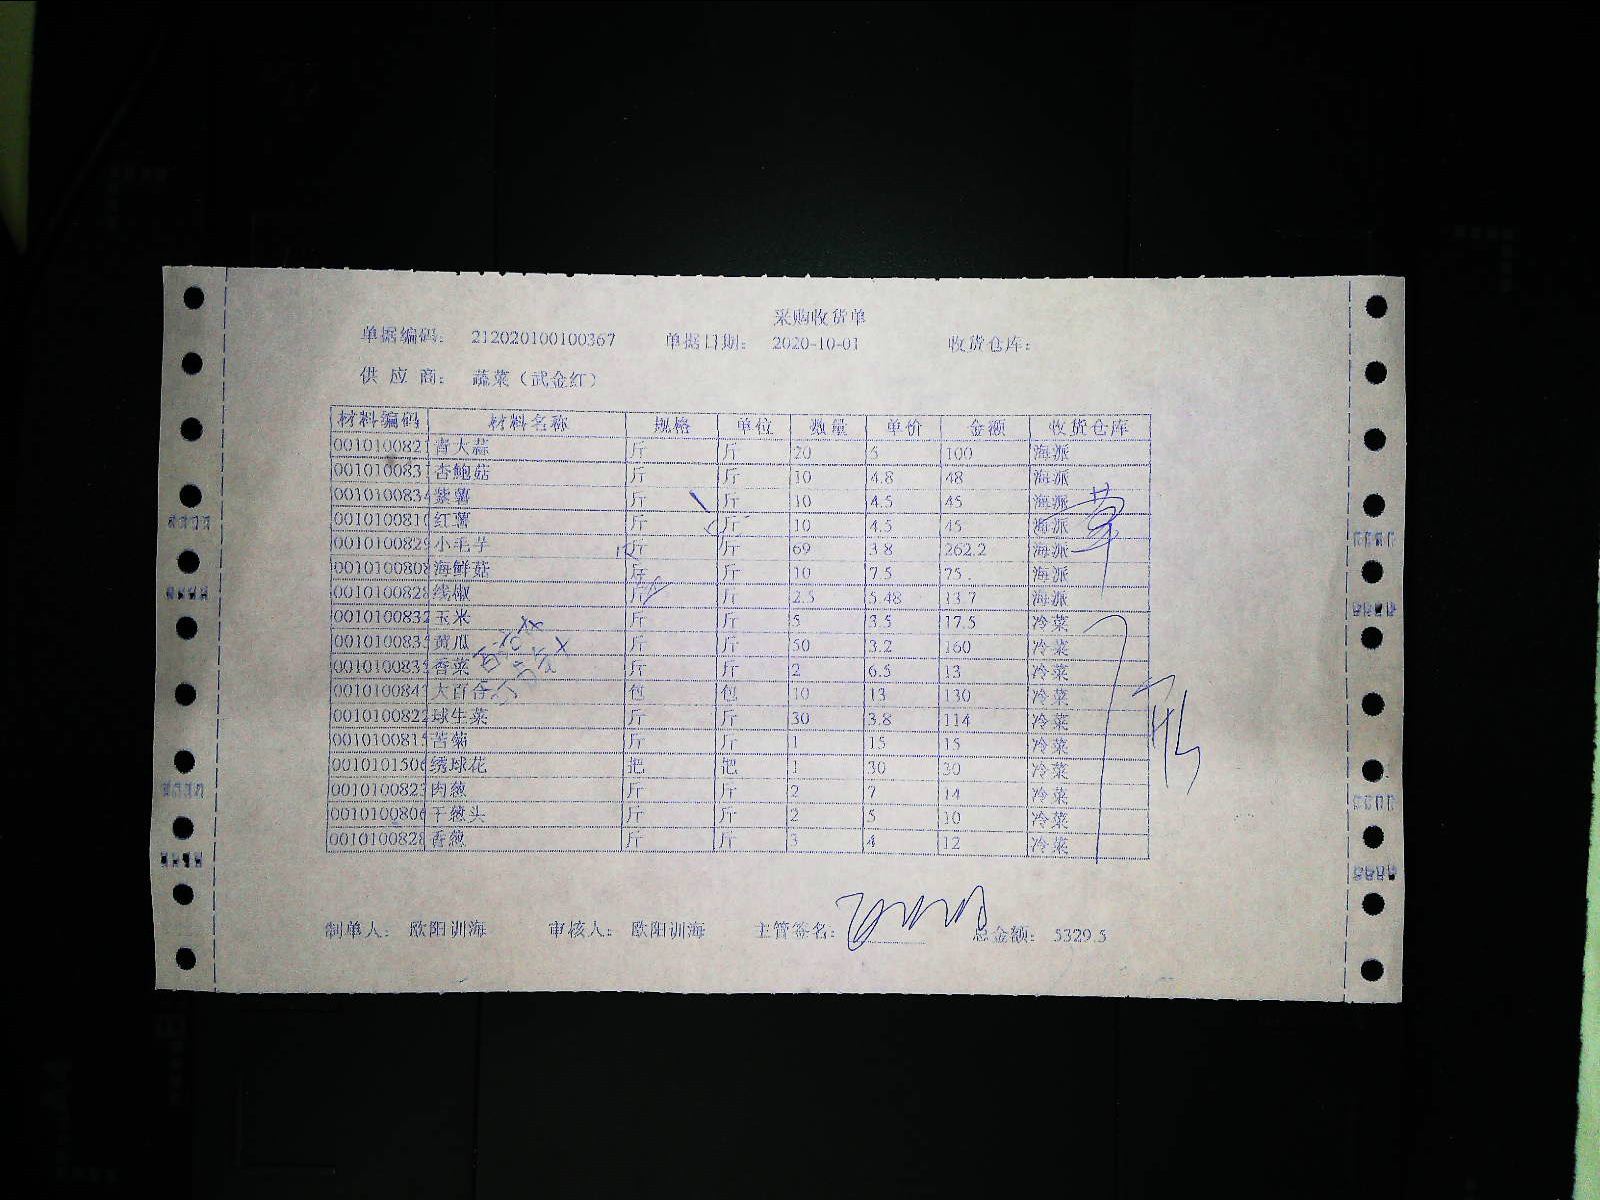 采购收货单
单据编码: 212020100100367 单据日期: 2020-10-01 收货仓库:
供应商: 蔬菜(武金红)
材料编码 材料名称 规格 单位 数量 单价 金额 收货仓库
0010100821 青大蒜 斤 斤 20 5 100 海派
001010083 杏鲍菇 斤 斤 10 4.8 48 海派
0010100834 紫薯 斤 斤 10 4.5 45 海派
001010081 红薯 斤 斤 10 4.5 45 海派
001010082 小毛芋 斤 斤 69 3.8 262.2 海派
001010080 海鲜菇 斤 斤 10 7.5 75. 海派
001010082 线椒 斤 斤 2.5 5.48 13.7 海派
0010100832 玉米 斤 斤 5 3.5 17.5 冷菜
001010083 黄瓜 斤 斤 50 3.2 160 冷菜
001010083 香菜 斤 斤 2 6.5 13 冷菜
001010084 大百合 包 包 10 13 130 冷菜
0010100822 球生菜 斤 斤 30 3.8 114 冷菜
001010081 苦菊 斤 斤 1 15 15 冷菜
001010150 绣球花 把 把 1 30 30 冷菜
001010082 肉葱 斤 斤 2 7 14 冷菜
001010080 干葱头 斤 斤 2 5 10 冷菜
001010082 香葱 斤 斤 3 4 12 冷菜
制单人: 欧阳训海 审核人: 欧阳训海 主管签名: 总金额: 5329.5